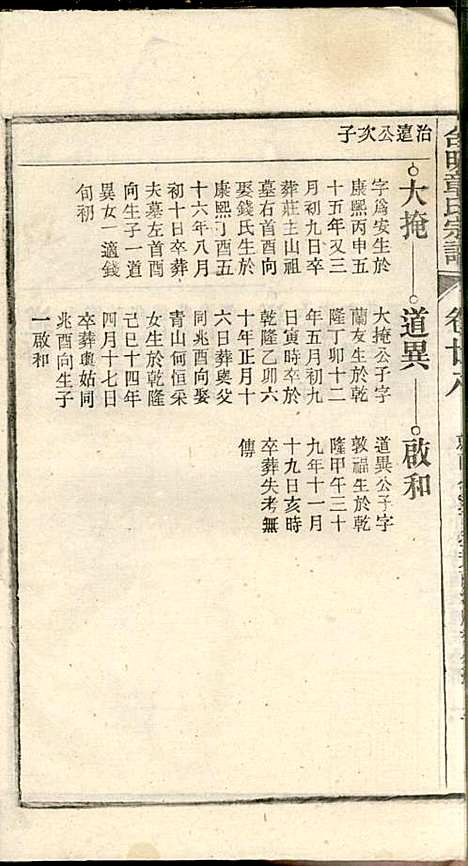 治蘧公次子
大掩
字爲安生於
康熙丙申五
十五年又三
月初九日卒
葬莊主山祖
墓右首酉向
娶錢氏生於
康熙丁酉五
十六年八月
初十日卒葬
夫墓左首酉
向生子一道
異女一適錢
旬初
道異
大掩公子字
蘭友生於乾
隆丁卯十二
年五月初九
日寅時卒於
乾隆乙卯六
十年正月十
六日葬與父
同兆酉向娶
青山何恒采
女生於乾隆
己巳十四年
四月十七日
卒葬與姑同
兆酉向生子
一啟和
啟和
道異公子字
敦福生於乾
隆甲午三十
九年十一月
十九日亥時
卒葬失考無
傳
章氏宗譜
卷廿八